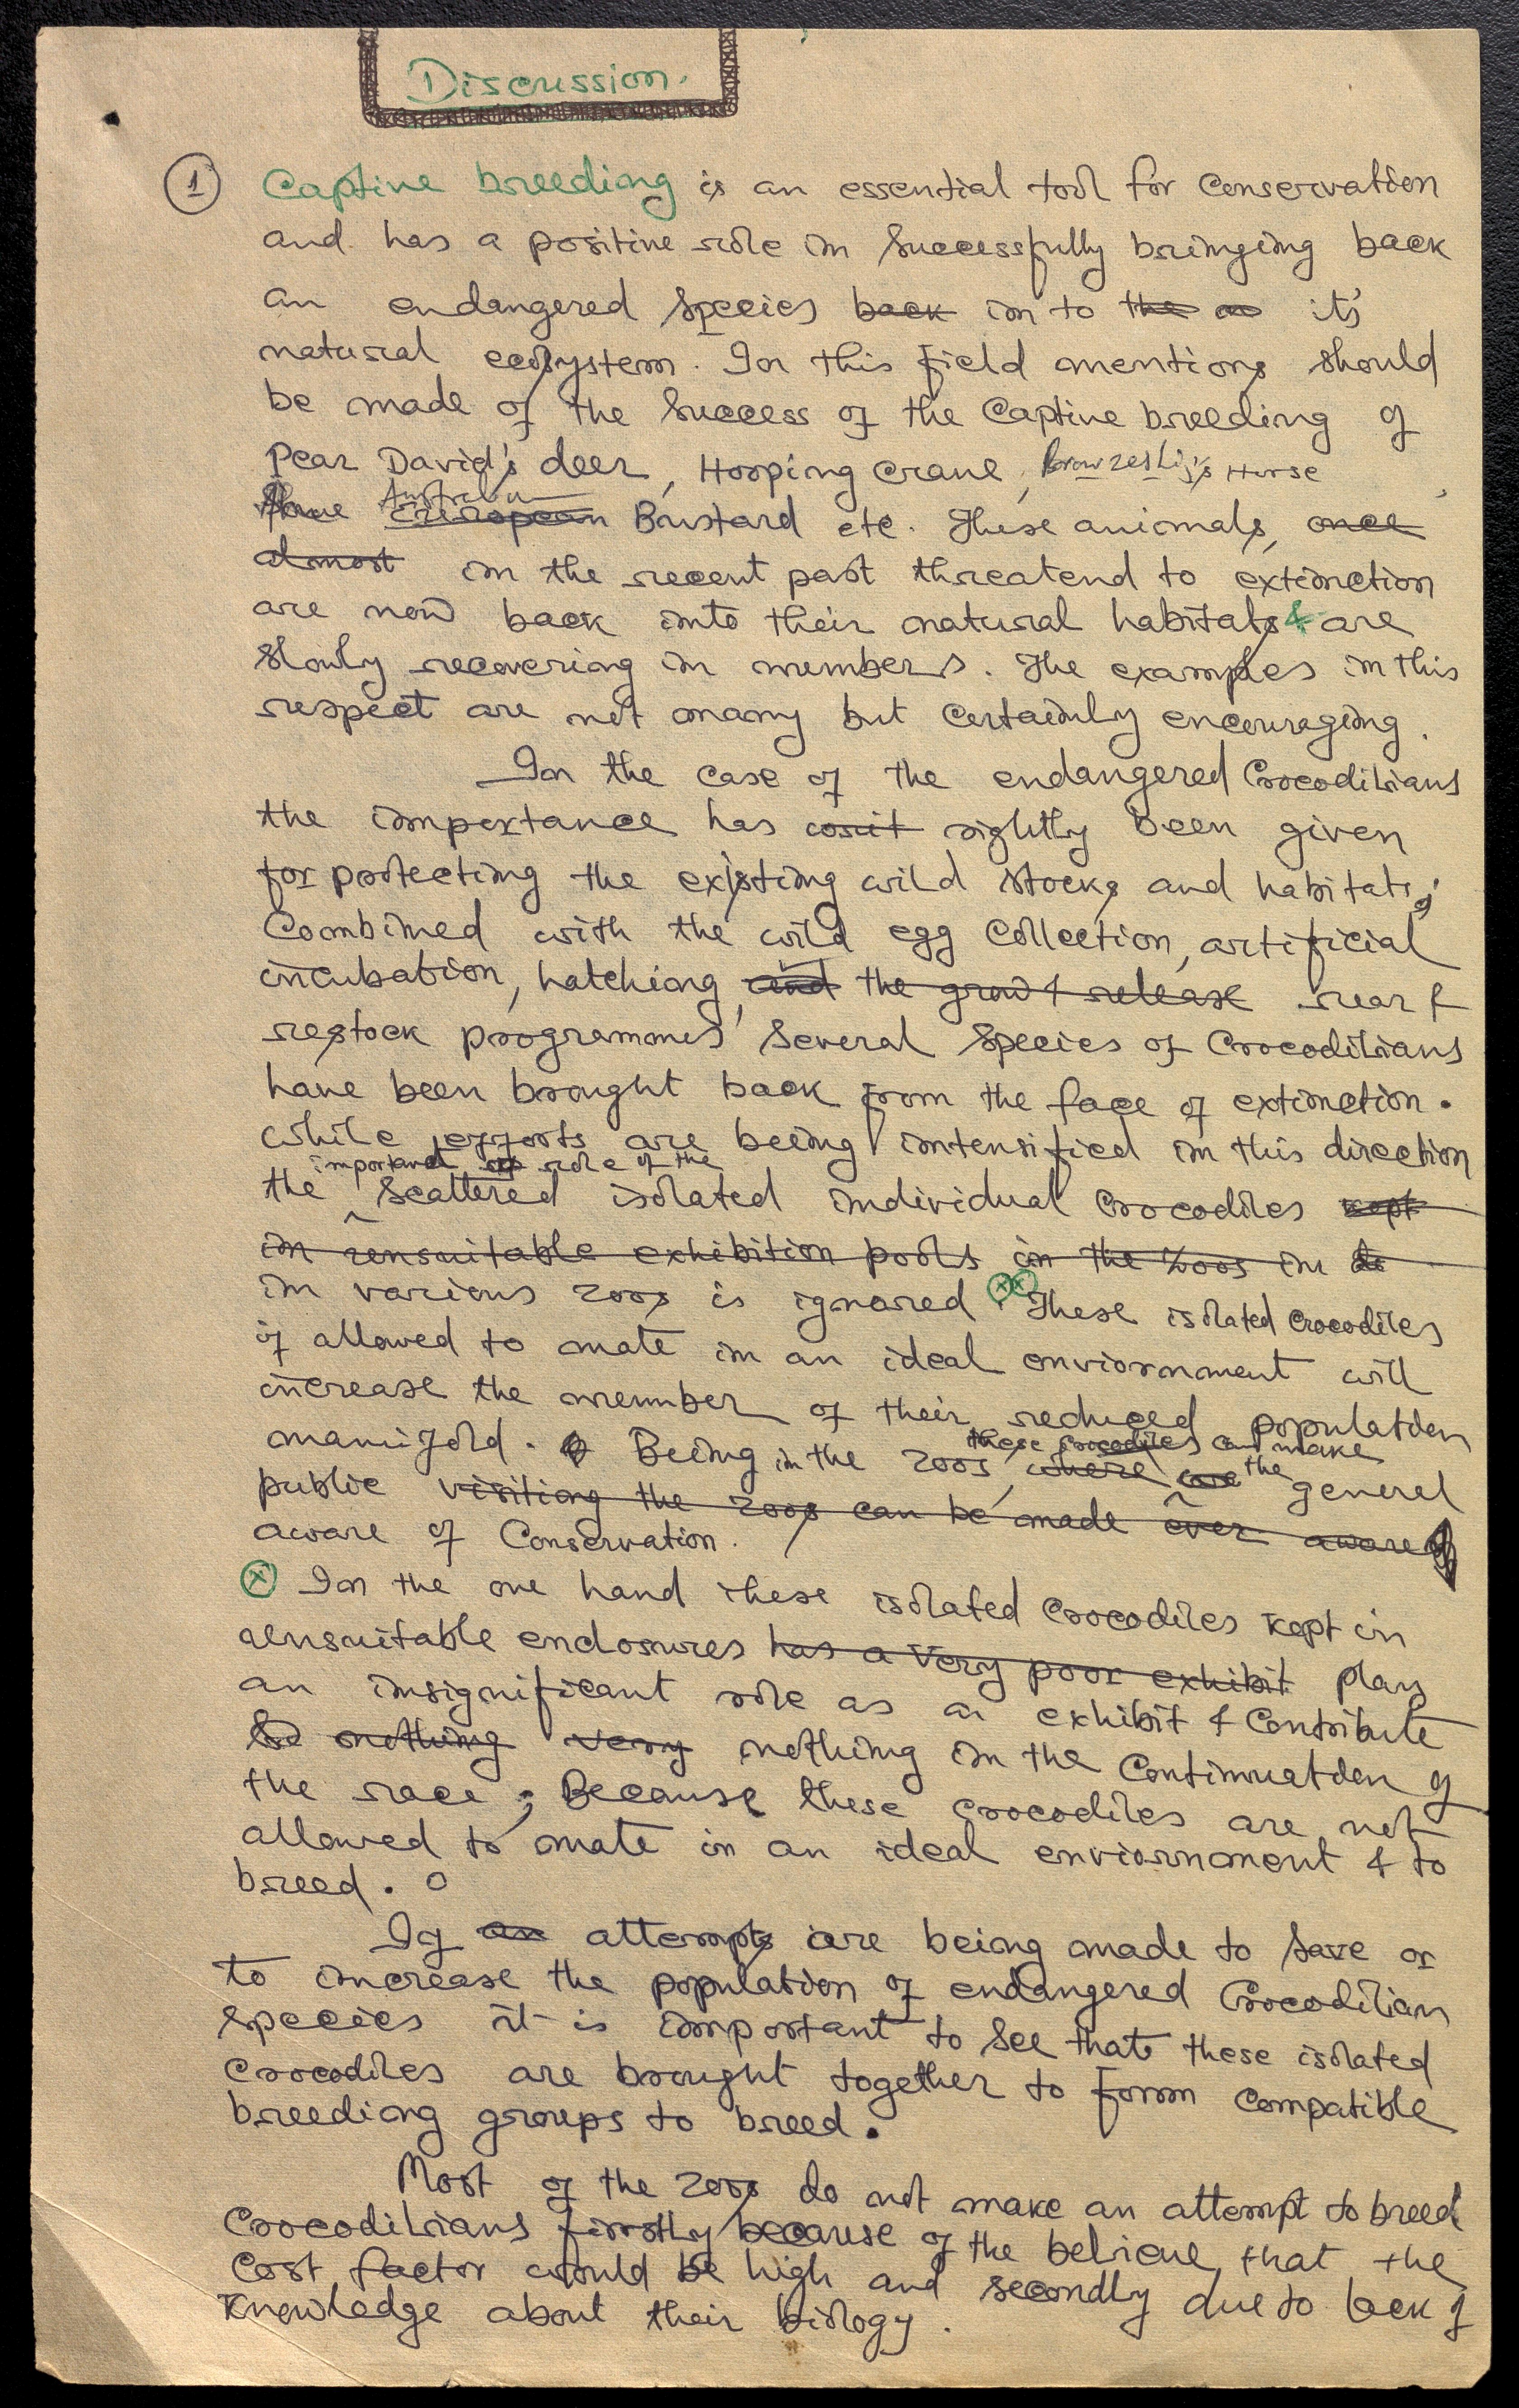 Discussion.
1 Captive breeding is an essential tool for Conservation
and has a positive role in Successfully bringing back
an endangered Species back in to the it's
natural ecosystem. In this field mentions should
be made of the Success of the Captive breeding of
Pear David's deer, Hooping Crane, Browzeski's Horse
Australian
European Bustard etc. These animals, once
almost in the recent past threatend to extinction
are now back into their natural habitats & are
Slowly recovering in numbers. The examples in this
respect are not many but Certainly encouraging.
In the case of the endangered Crocodilians
the importance has rightly been given
for protecting the existing wild stocks and habitats;
Combined with the wild egg Collection, artificial
incubation, hatching, and the grow & release rear &
restock programmes Several Species of Crocodilians
have been brought back from the face of extinction.
While efforts are being intensified in this direction
important role of the
the Scattered isolated individual Crocodiles kept
in unsuitable exhibition pools in the zoos in
in various zoos is ignored. xx These isolated Crocodiles
if allowed to mate in an ideal enviornment will
increase the number of their reduced population
these crocodiles can make
manifold. Being in the zoos, where are the general
public visiting the zoos can be made ever aware of
aware of Conservation.
x In the one hand these isolated Crocodiles kept in
unsuitable enclosures has a very poor exhibit play
an insignificant role as an exhibit & Contribute
So nothing very nothing in the Continuation of
the race; Because these crocodiles are not
allowed to mate in an ideal enviornment & to
breed.
If an attempts are being made to Save or
to increase the population of endangered Crocodilian
Species it is important to see that these isolated
Crocodiles are brought together to form Compatible
breeding groups to breed.
Most of the zoos do not make an attempt to breed
Crocodilians firstly because of the believe, that the
Cost factor would be high and secondly due to lack of
Knowledge about their biology.